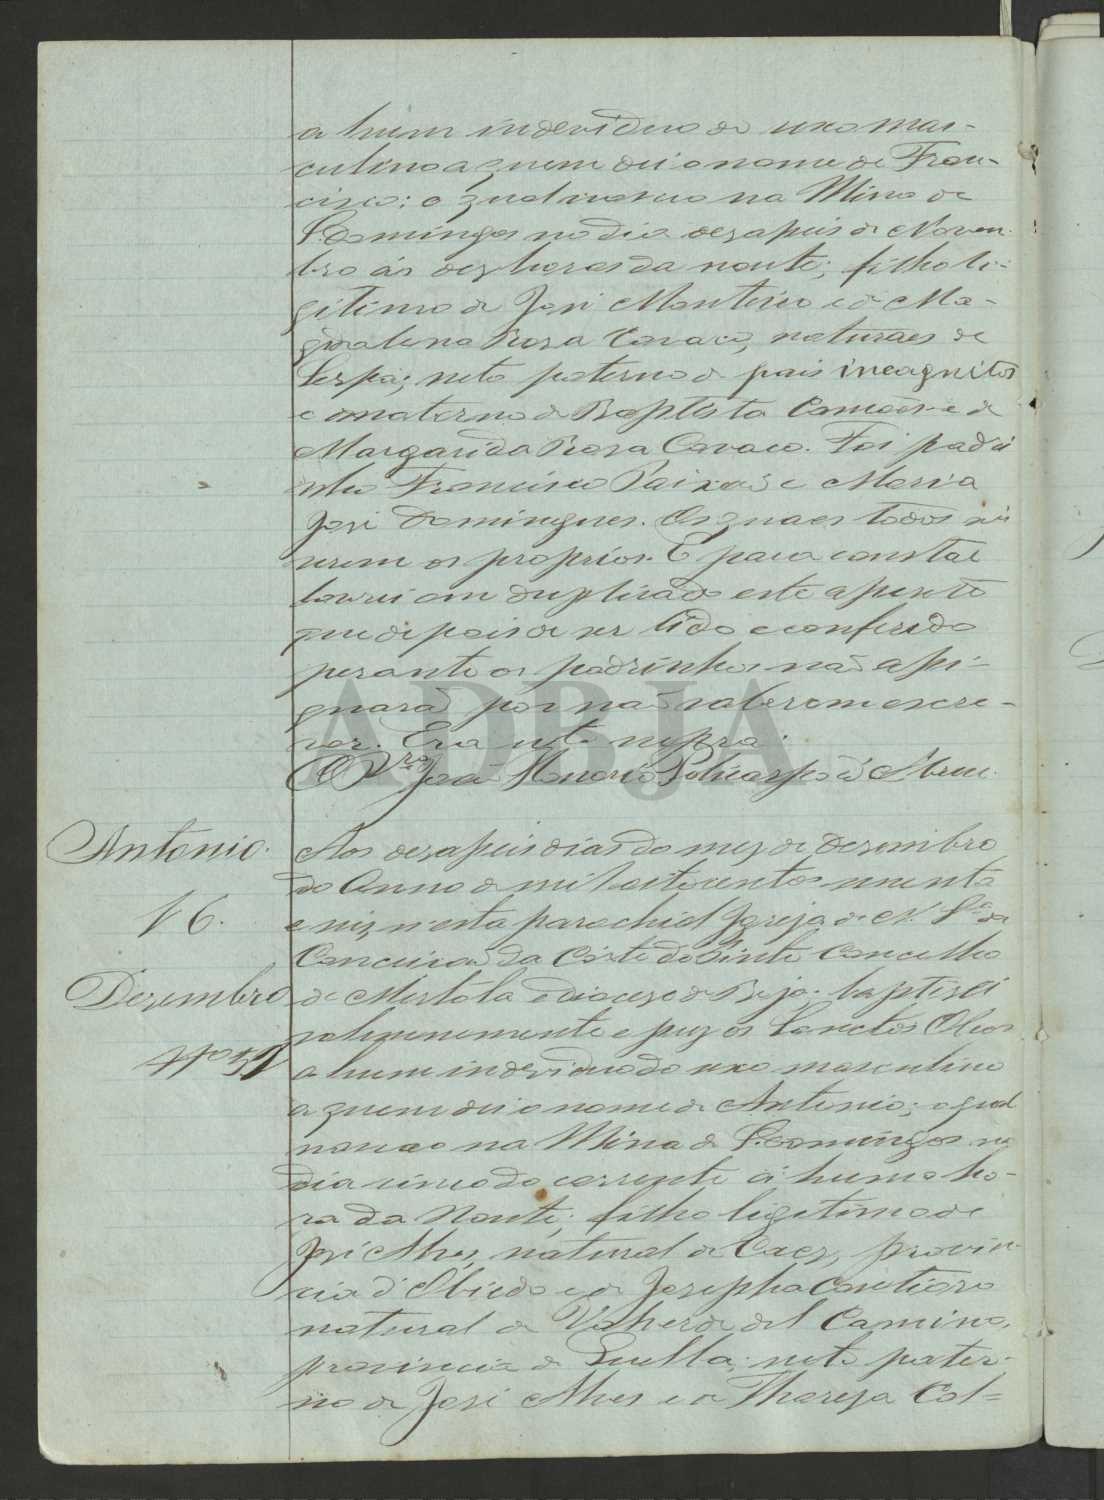 a hum individuo do sexo mas-
culino a quem dei o nome de Fran-
cisco: o qual nasceu na Mina de
S. Domingos no dia dezaseis de Novem-
bro ás dez horas da noute; filho le-
gitimo de José Monteiro e de Ma-
gdalena Rosa Cavaco, naturaes de
Serpa; neto paterno de pais incognitos
e materno de Baptista Camões e de
Margarida Rosa Cavaco. Foi padri
nho Francisco Paixão e Maria
José Domingues. Os quaes todos
serem os proprios. E para constar
lavrei em duplicado este assento
que depois de ser lido e conferido
perante os padrinhos não assi-
gnarão por não saberem escre-
ver. Era ut supra.
O João Honorio Policarpo d'Abreu.
Antonio.
16.
Dezembro
Nº 52
Aos dezaseis dias do mez de Dezembro
do Anno de mil oitocentos noventa
e n'esta parochial Igreja de N. Sª da
Conceição da Corte do Pinto Concelho
de Mertola e diocese de Beja; baptisei
solemnemente e puz os Sanctos Oleos
a hum individuo do sexo masculino
a quem dei o nome de Antonio; o qual
nasceu na Mina de S. Domingos no
dia cinco do corrente á huma ho-
ra da Noute; filho legitimo de
José Alves, natural de provin-
cia d'Obiedo e de Josepha
natural de Valverde del Camino,
provincia de neto pater-
no de José Alves e de Thereza Col=
ADBJA